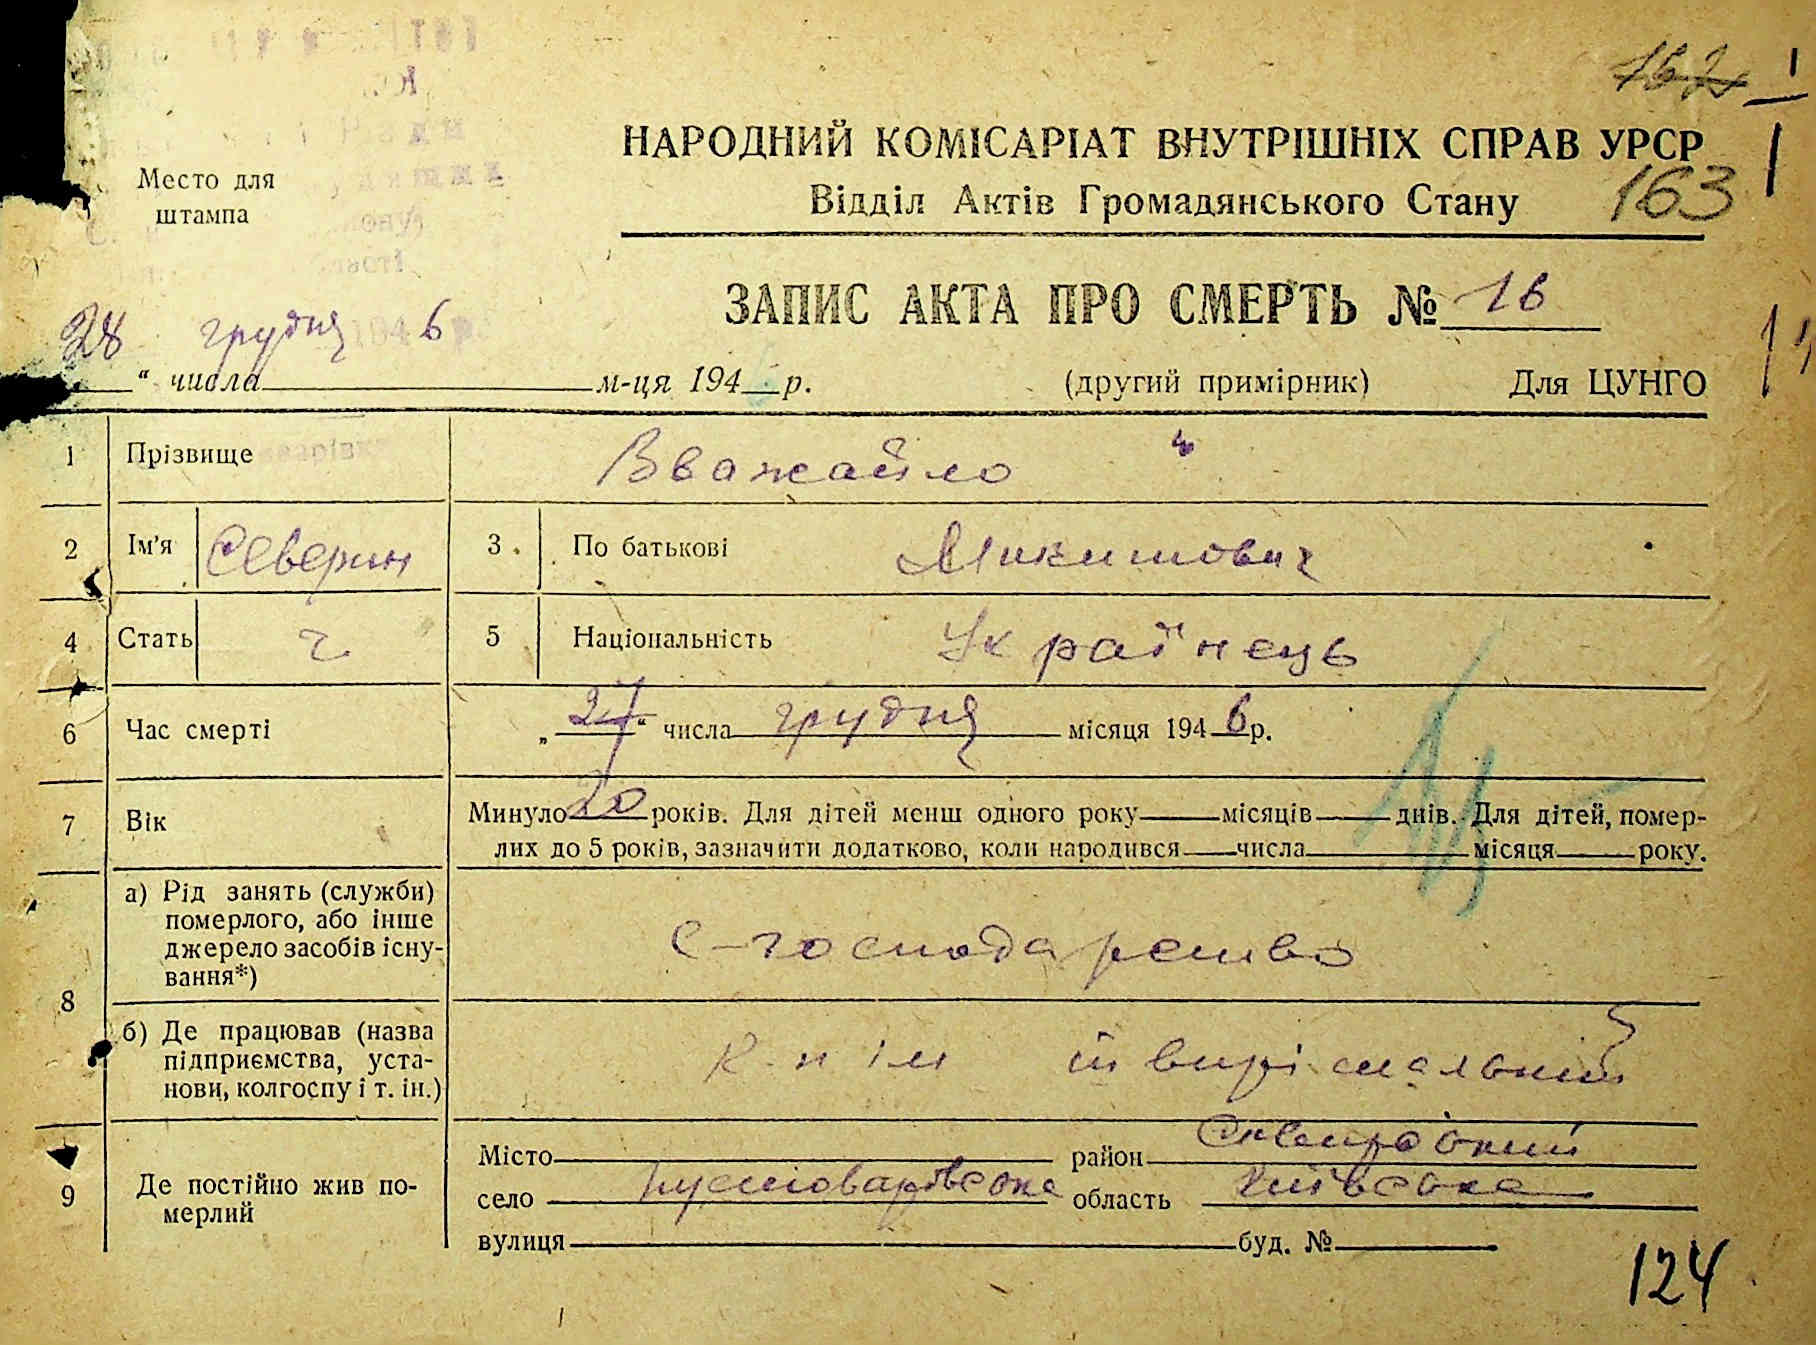 162
НАРОДНИЙ КОМІСАРІАТ ВНУТРІШНІХ СПРАВ УРСР
Відділ Актів Громадянського Стану
163
Место для
штампа
ЗАПИС АКТА ПРО СМЕРТЬ № 16
28 грудня 1946 р.
" числа м-ця 194 р. (другий примірник) Для ЦУНГО
1 Прізвище Вважайло
2 Ім'я Северин 3 По батькові Микитович
4 Стать ч 5 Національність Українець
6 Час смерті „27" числа грудня місяця 1946 р.
7 Вік Минуло 20 років. Для дітей менш одного року місяців днів. Для дітей, помер-
лих до 5 років, зазначити додатково, коли народився числа місяця року.
8 а) Рід занять (служби)
померлого, або інше
джерело засобів існу-
вання*)
с-господарство
б) Де працював (назва
підприємства, уста-
нови, колгоспу і т. ін.)
9 Де постійно жив по-
мерлий
Місто район Сквирський
село Пустоварівська область Київська
вулиця буд. №
124